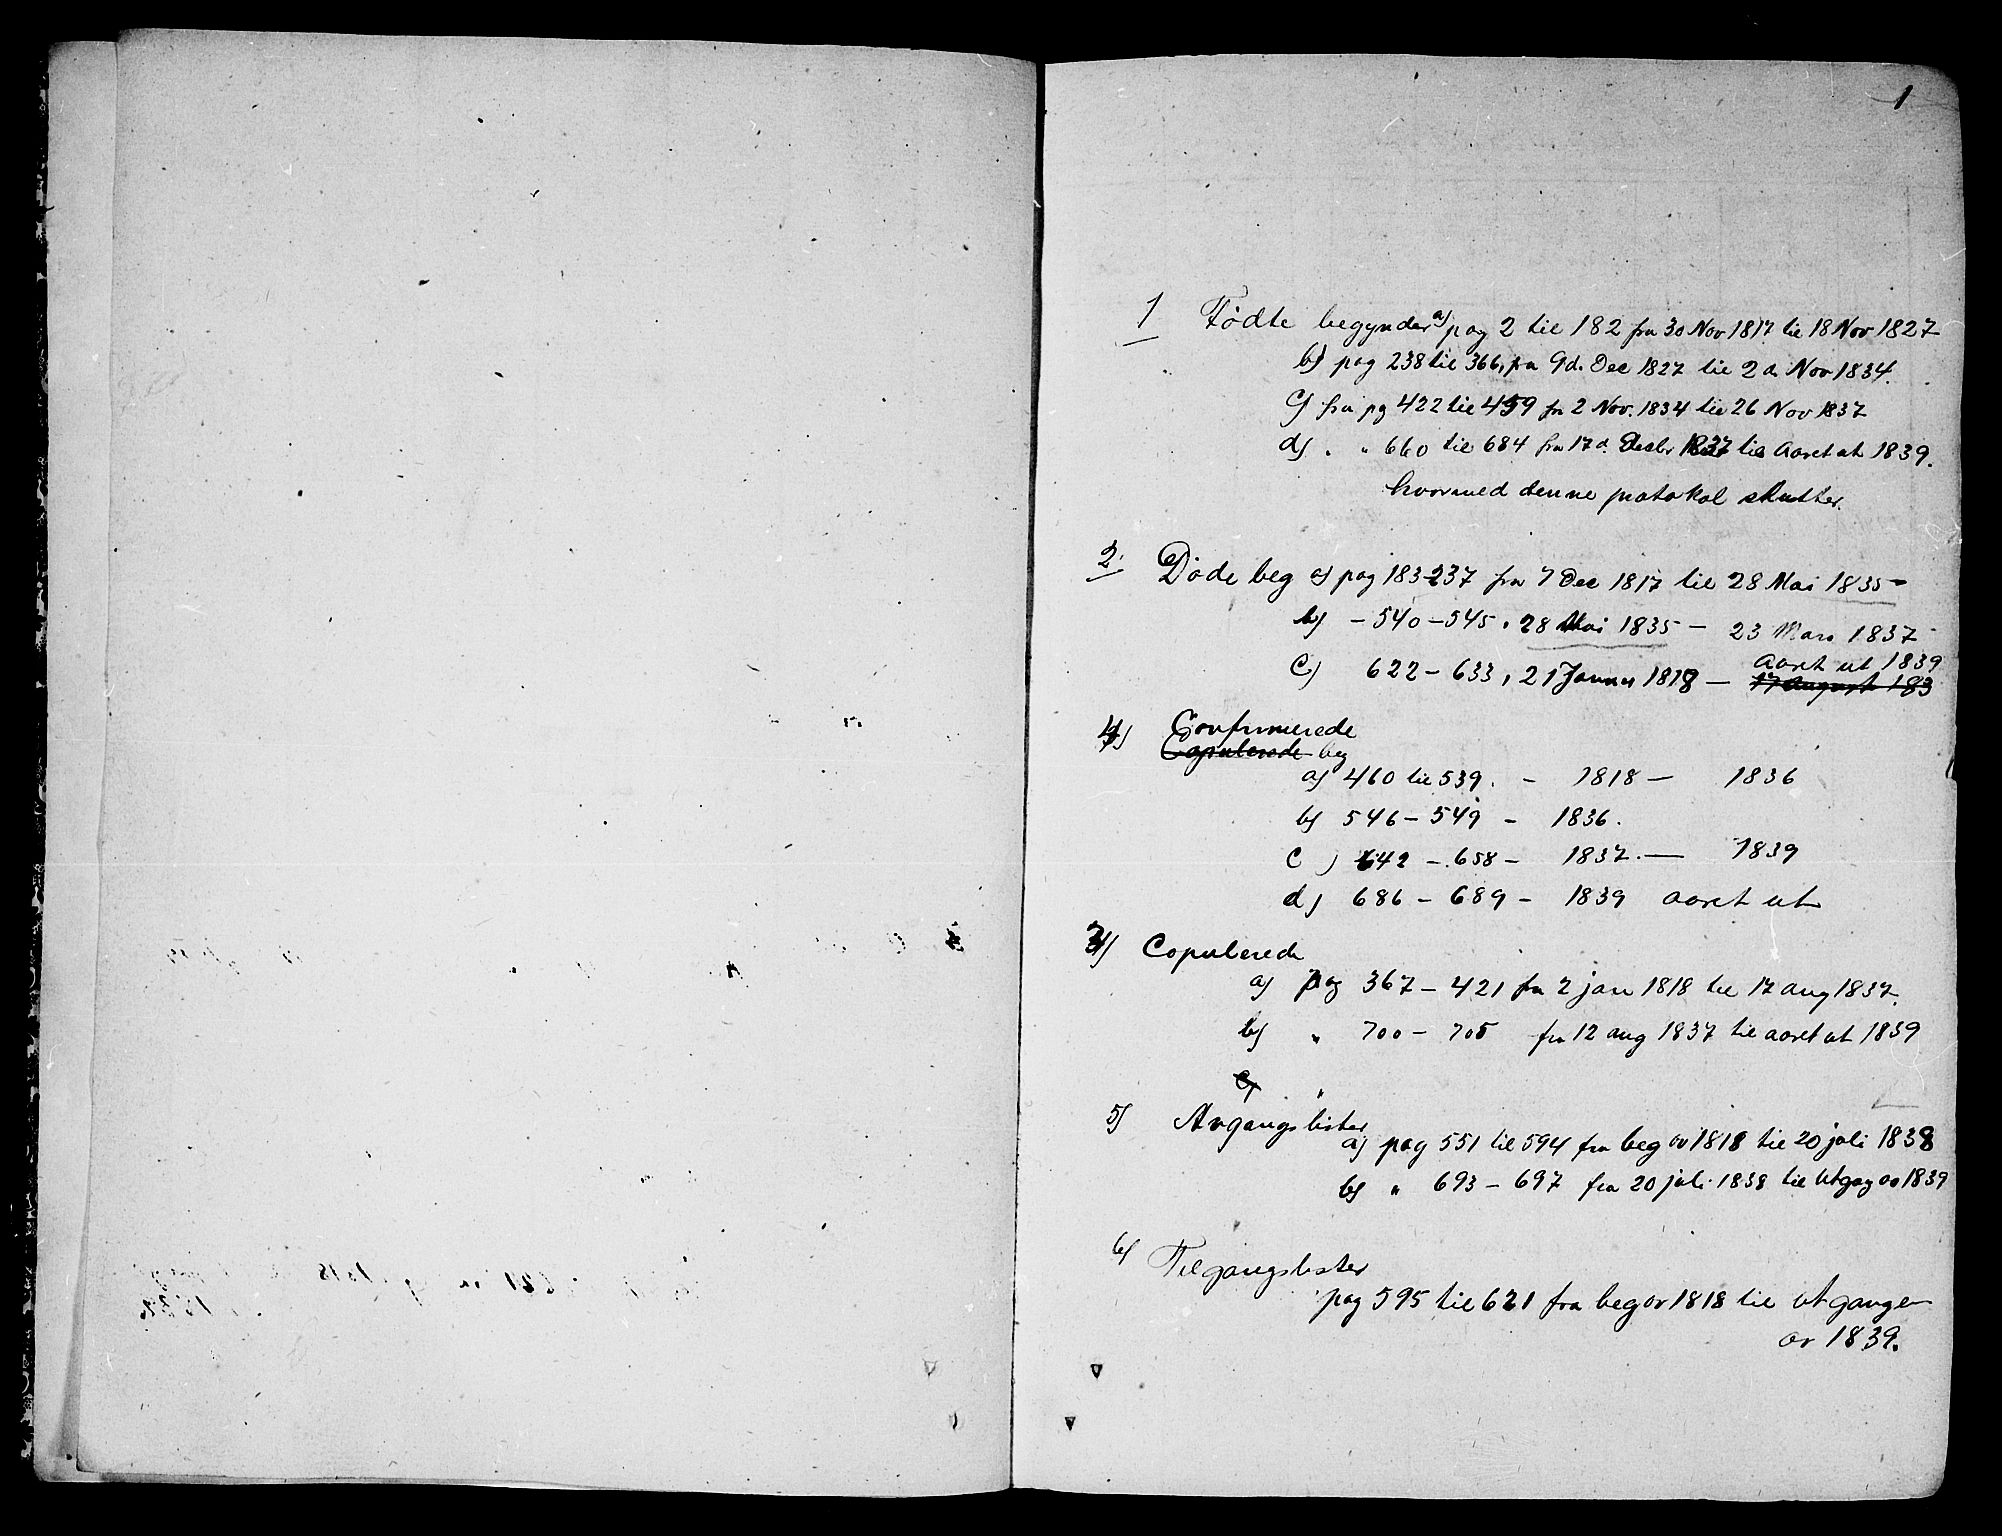 1
1 Fødte begynder a) pag 2 til 182 fra 30 Nov 1817 til 18 Nov 1827
b) pag 238 til 366, fra 9d. Dec 1827 til 2 d. Nov 1834.
c) fra pg 422 til 459 fr 2 Nov. 1834 til 26 Nov 1837
d) " " 660 til 684 fra 17 d. Decbr 1837 til Aaret ut 1839.
hvormed denne protokol slutter.
2. Døde beg a) pag 183-237 fra 7 Dec 1817 til 28 Mai 1835-
b) - 540-545, 28 Mai 1835 - 23 Mars 1837
aaret ut 1839
c) 622-633, 21 Januar 1818 - 17 august 183
4) Confirmerede
Copulerede beg
a) 460 til 539. - 1818 - 1836
b) 546-549 - 1836.
c) 642 - 658 - 1837. - 1839
d) 686 - 689 - 1839 aaret ut
3) Copulerede
a) pag 367-421 fra 2 jan 1818 til 17 aug 1837.
b) " 700-705 fra 12 aug 1837 til aaret ut 1839
c) "
5) Avgangslister
a) pag 551 til 594 fra beg av 1818 til 20 juli 1838
b) " 693-697 fra 20 juli 1838 til utgag av 1839
6) Tilgangslister
pag 595 til 621 fra beg av 1818 til utgangen
av 1839.